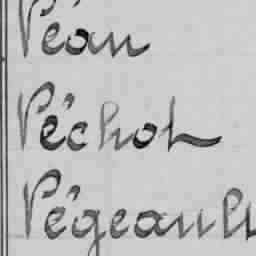 Péan
Péchot
Pégeault